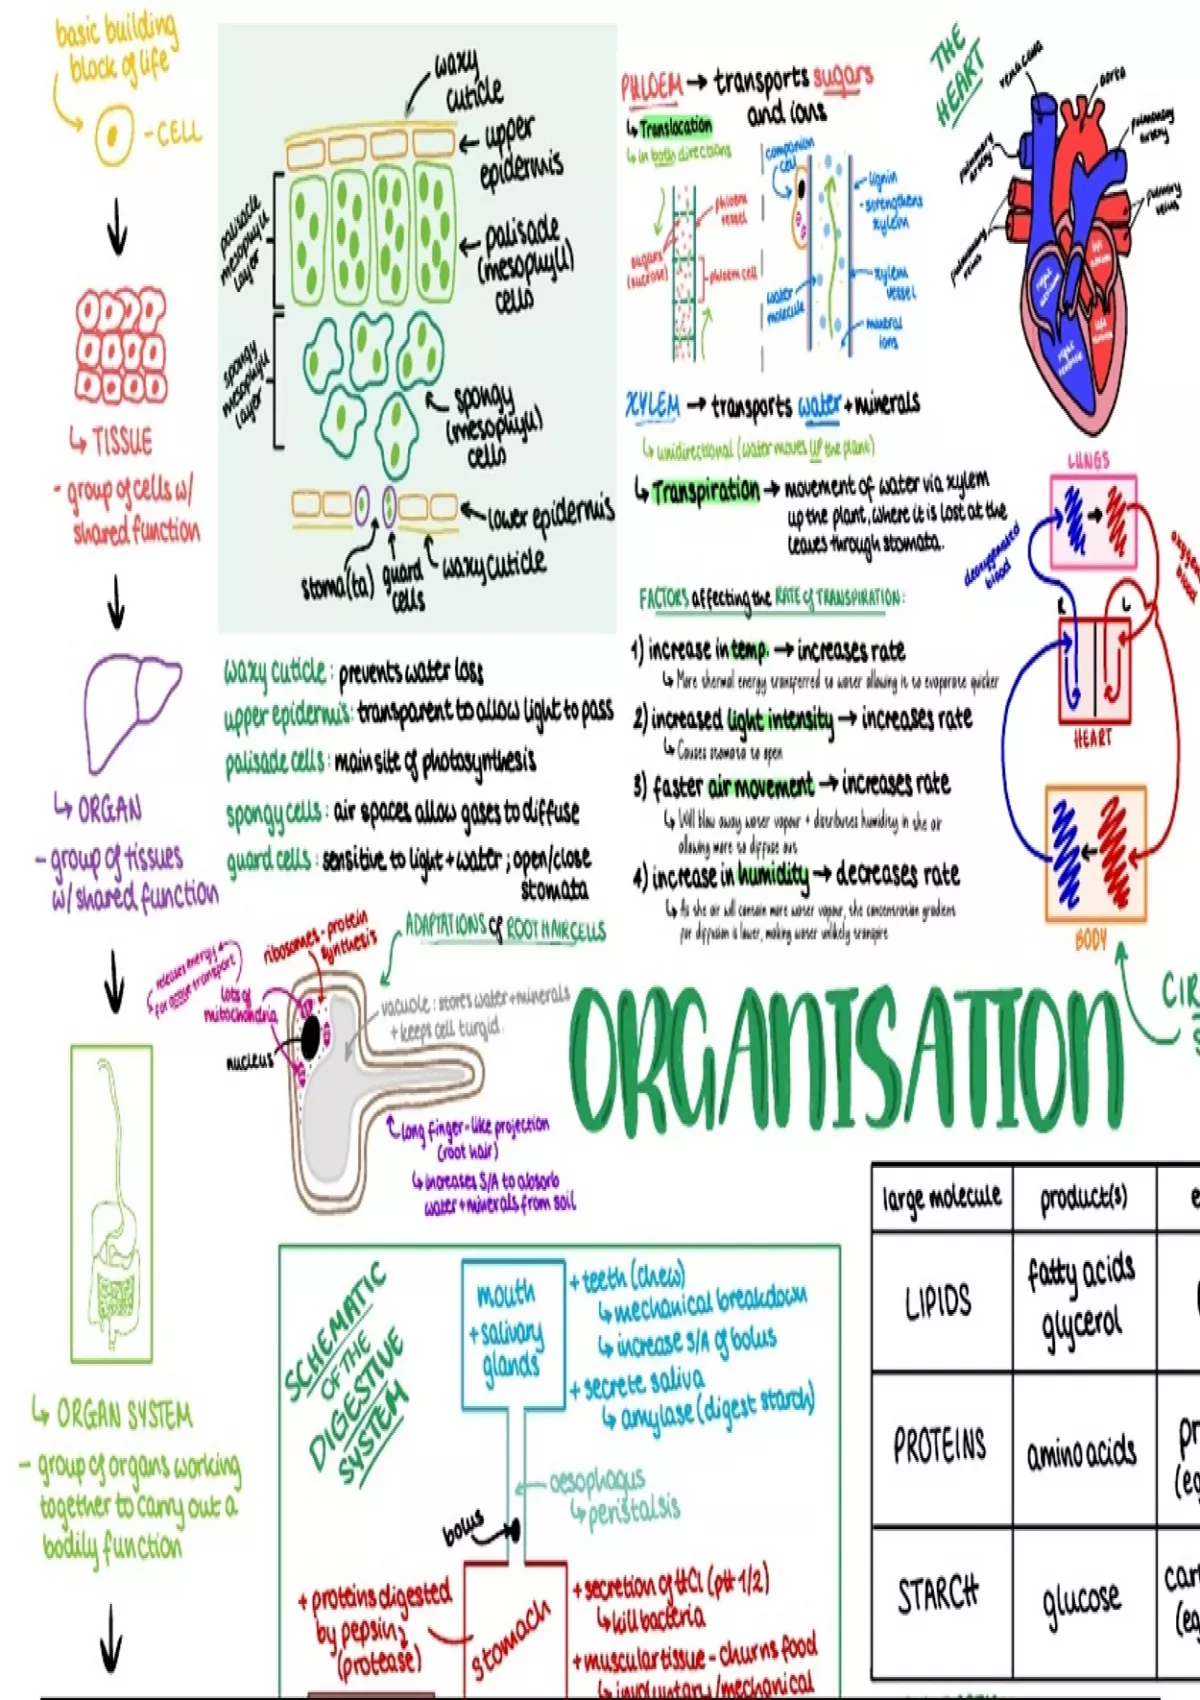 basic building
block of life
- CELL
↳ TISSUE
- group of cells w/
shared function
↳ ORGAN
- group of tissues
w/ shared function
↳ ORGAN SYSTEM
- group of organs working
together to carry out a
bodily function
waxy
cuticle
upper
epidermis
palisade
mesophyll
layer
palisade
(mesophyll)
cells
spongy
mesophyll
layer
spongy
(mesophyll)
cells
lower epidermis
stoma(ta)
guard
cells
waxy cuticle
waxy cuticle : prevents water loss
upper epidermis: transparent to allow light to pass
palisade cells : main site of photosynthesis
spongy cells : air spaces allow gases to diffuse
guard cells : sensitive to light + water ; open/close
stomata
PHLOEM → transports sugars
and ions
↳ Translocation
↳ in both directions
phloem
vessel
sugars
(sucrose)
phloem cell
companion
cell
lignin
- strengthens
xylem
water
molecule
xylem
vessel
mineral
ions
XYLEM → transports water + minerals
↳ unidirectional (water moves UP the plant)
↳ Transpiration → movement of water via xylem
up the plant, where it is lost at the
leaves through stomata.
FACTORS affecting the RATE of TRANSPIRATION:
1) increase in temp. → increases rate
↳ More thermal energy transferred to water allowing it to evaporate quicker
2) increased light intensity → increases rate
↳ Causes stomata to open
3) faster air movement → increases rate
↳ Will blow away water vapour + distributes humidity in the air
allowing more to diffuse out
4) increase in humidity → decreases rate
↳ As the air will contain more water vapour, the concentration gradient
for diffusion is lower, making water unlikely transpire
THE
HEART
vena cava
aorta
pulmonary
artery
pulmonary
artery
pulmonary
veins
pulmonary
veins
right
atrium
left
atrium
right
ventricle
left
ventricle
LUNGS
deoxygenated
blood
oxygen
blood
R
L
HEART
BODY
CIR
S
ADAPTATIONS of ROOT HAIR CELLS
ribosomes - protein
synthesis
releases energy
for active transport
lots of
mitochondria
nucleus
vacuole : stores water + minerals
+ keeps cell turgid.
long finger-like projection
(root hair)
↳ increases S/A to absorb
water + minerals from soil
ORGANISATION
SCHEMATIC
OF THE
DIGESTIVE
SYSTEM
mouth
+ salivary
glands
+ teeth (chew)
↳ mechanical breakdown
↳ increase S/A of bolus
+ secrete saliva
↳ amylase (digest starch)
oesophagus
↳ peristalsis
bolus
+ proteins digested
by pepsin
(protease)
stomach
+ secretion of HCl (pH 1/2)
↳ kill bacteria
+ muscular tissue - churns food
↳ involuntary/mechanical
large molecule
product(s)
e
LIPIDS
fatty acids
glycerol
PROTEINS
amino acids
pr
(eg
STARCH
glucose
car
(eg